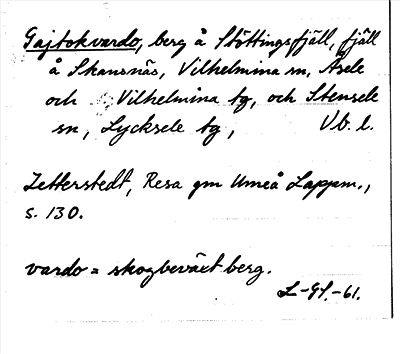 Gajtokvardo, berg å Stöttingsfjäll, fjäll
å Skansnäs, Vilhelmina sn, Åsele
och Vilhelmina tg, och Stensele
sn, Lycksele tg, Vb. l.
Zetterstedt, Resa gm Umeå Lappm.,
s. 130.
vardo = skogbeväxt berg.
L-Gf.-61.